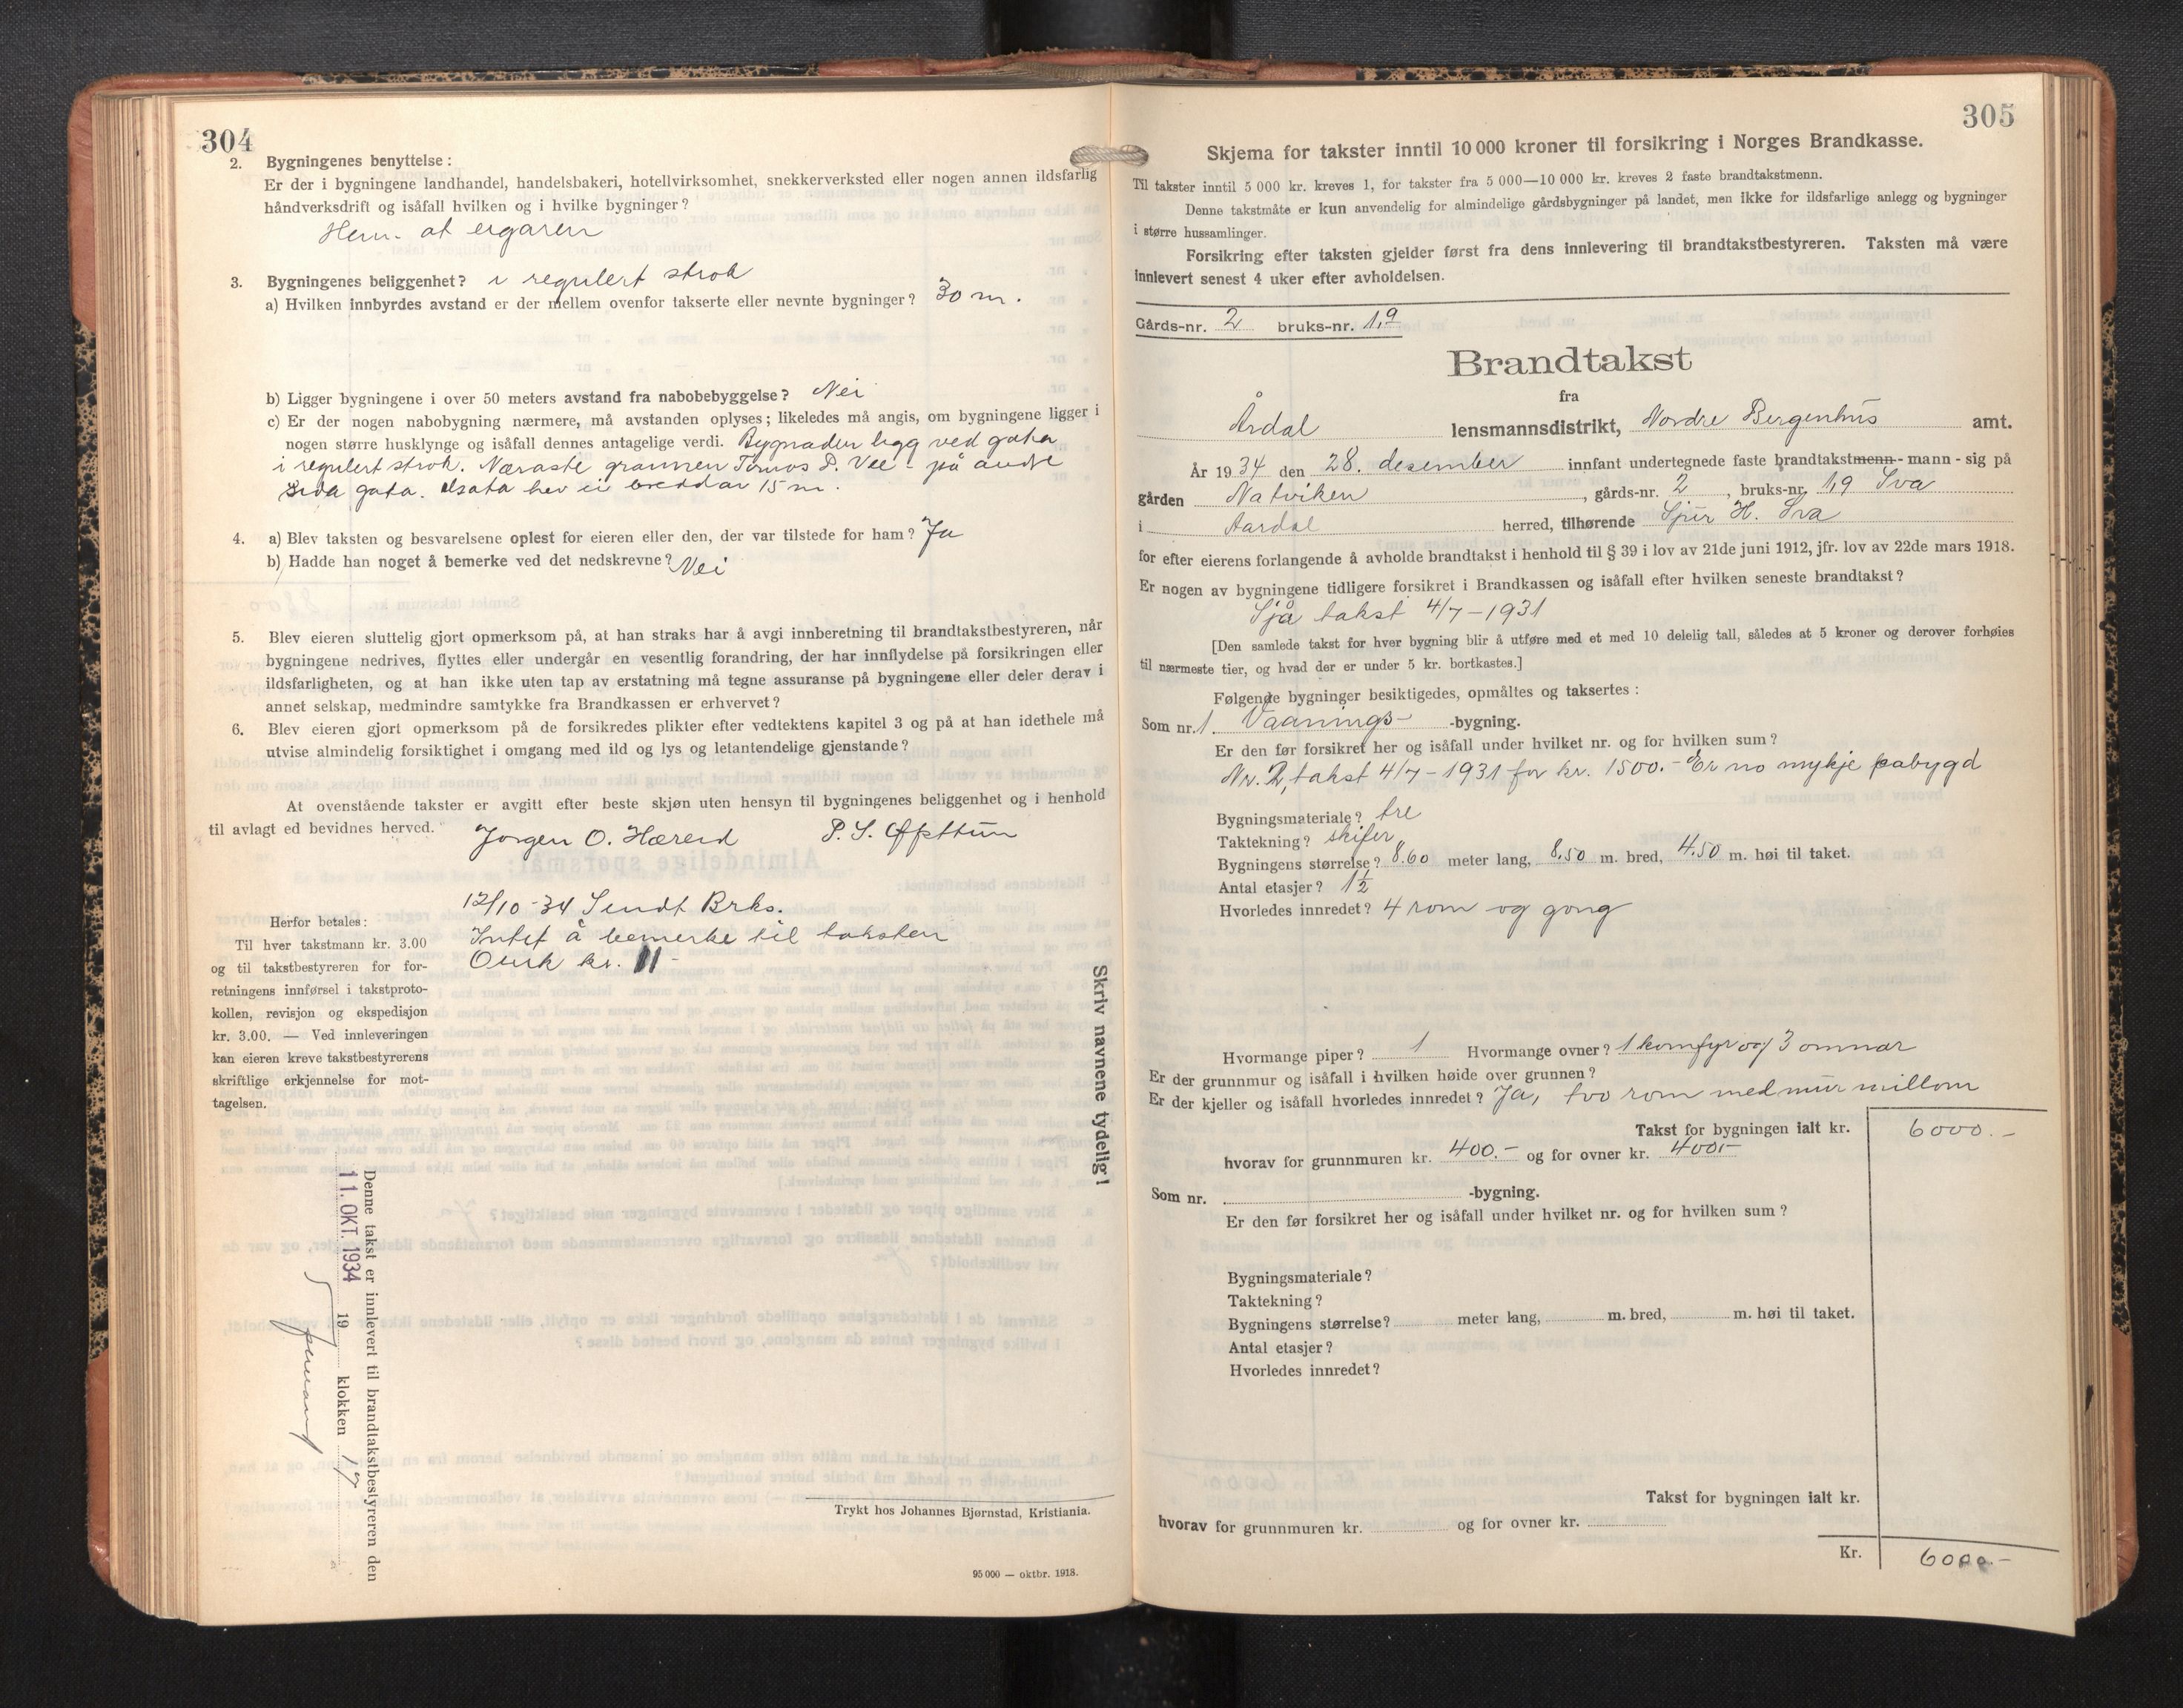 304
2. Bygningenes benyttelse:
Er der i bygningene landhandel, handelsbakeri, hotellvirksomhet, snekkerverksted eller nogen annen ildsfarlig
håndverksdrift og isåfall hvilken og i hvilke bygninger?
Heim- at eigaren
3. Bygningenes beliggenhet? i regulert strok
a) Hvilken innbyrdes avstand er der mellem ovenfor takserte eller nevnte bygninger? 30 m.
b) Ligger bygningene i over 50 meters avstand fra nabobebyggelse? Nei
c) Er der nogen nabobygning nærmere, må avstanden oplyses; likeledes må angis, om bygningene ligger i
nogen større husklynge og isåfall dennes antagelige verdi. Bygnaden ligg ved gata
i regulert strok. Næraste grannen Tomos P. Vee - på andre
sida gata. Gata hev ei breidd av 15 m.
4. a) Blev taksten og besvarelsene oplest for eieren eller den, der var tilstede for ham? Ja
b) Hadde han noget å bemerke ved det nedskrevne? Nei
5. Blev eieren sluttelig gjort opmerksom på, at han straks har å avgi innberetning til brandtakstbestyreren, når
bygningene nedrives, flyttes eller undergår en vesentlig forandring, der har innflydelse på forsikringen eller
ildsfarligheten, og at han ikke uten tap av erstatning må tegne assuranse på bygningene eller deler derav i
annet selskap, medmindre samtykke fra Brandkassen er erhvervet?
6. Blev eieren gjort opmerksom på de forsikredes plikter efter vedtektens kapitel 3 og på at han idethele må
utvise almindelig forsiktighet i omgang med ild og lys og letantendelige gjenstande?
At ovenstående takster er avgitt efter beste skjøn uten hensyn til bygningenes beliggenhet og i henhold
til avlagt ed bevidnes herved.
Jørgen O. Hæreid P. S. Offstun
12/10-34 Sendt Brks.
Intet å bemerke til taksten
kr. 11-
Herfor betales:
Til hver takstmann kr. 3.00
og til takstbestyreren for for-
retningens innførsel i takstproto-
kollen, revisjon og ekspedisjon
kr. 3.00. — Ved innleveringen
kan eieren kreve takstbestyrerens
skriftlige erkjennelse for mot-
tagelsen.
Skriv navnene tydelig!
Denne takst er innlevert til brandtakstbestyreren den
11. OKT. 1934 19 klokken 17
Trykt hos Johannes Bjørnstad, Kristiania.
95 000 — oktbr. 1918.
305
Skjema for takster inntil 10 000 kroner til forsikring i Norges Brandkasse.
Til takster inntil 5 000 kr. kreves 1, for takster fra 5 000—10 000 kr. kreves 2 faste brandtakstmenn.
Denne takstmåte er kun anvendelig for almindelige gårdsbygninger på landet, men ikke for ildsfarlige anlegg og bygninger
i større hussamlinger.
Forsikring efter taksten gjelder først fra dens innlevering til brandtakstbestyreren. Taksten må være
innlevert senest 4 uker efter avholdelsen.
Gårds-nr. 2 bruks-nr. 1,9
Brandtakst
fra
Årdal lensmannsdistrikt, Nordre Bergenhus amt.
År 1934 den 28. desember innfant undertegnede faste brandtakstmenn - mann - sig på
gården Natviken, gårds-nr. 2, bruks-nr. 1,9 Sva
i Aardal herred, tilhørende H. Sva
for efter eierens forlangende å avholde brandtakst i henhold til § 39 i lov av 21de juni 1912, jfr. lov av 22de mars 1918.
Er nogen av bygningene tidligere forsikret i Brandkassen og isåfall efter hvilken seneste brandtakst?
Sjå takst 4/7-1931
[Den samlede takst for hver bygning blir å utføre med et med 10 delelig tall, således at 5 kroner og derover forhøies
til nærmeste tier, og hvad der er under 5 kr. bortkastes.]
Følgende bygninger besiktigedes, opmåltes og taksertes:
Som nr. 1 Vaanings- -bygning.
Er den før forsikret her og isåfall under hvilket nr. og for hvilken sum?
Nr. 2, takst 4/7-1931 for kr. 1500.- Er no mykje påbygd
Bygningsmateriale? tre
Taktekning? skifer
Bygningens størrelse? 8.60 meter lang, 8.50 m. bred, 4.50 m. høi til taket.
Antal etasjer? 1½
Hvorledes innredet? 4 rom og gong
Hvormange piper? 1 Hvormange ovner? 1 komfyr og 3 omnar
Er der grunnmur og isåfall i hvilken høide over grunnen?
Er der kjeller og isåfall hvorledes innredet? Ja, tvo rom med mur millom
Takst for bygningen ialt kr. 6000.-
hvorav for grunnmuren kr. 400.- og for ovner kr. 400.-
Som nr. -bygning.
Er den før forsikret her og isåfall under hvilket nr. og for hvilken sum?
Bygningsmateriale?
Taktekning?
Bygningens størrelse? meter lang, m. bred, m. høi til taket.
Antal etasjer?
Hvorledes innredet?
Takst for bygningen ialt kr.
hvorav for grunnmuren kr. og for ovner kr.
Kr. 6000.-